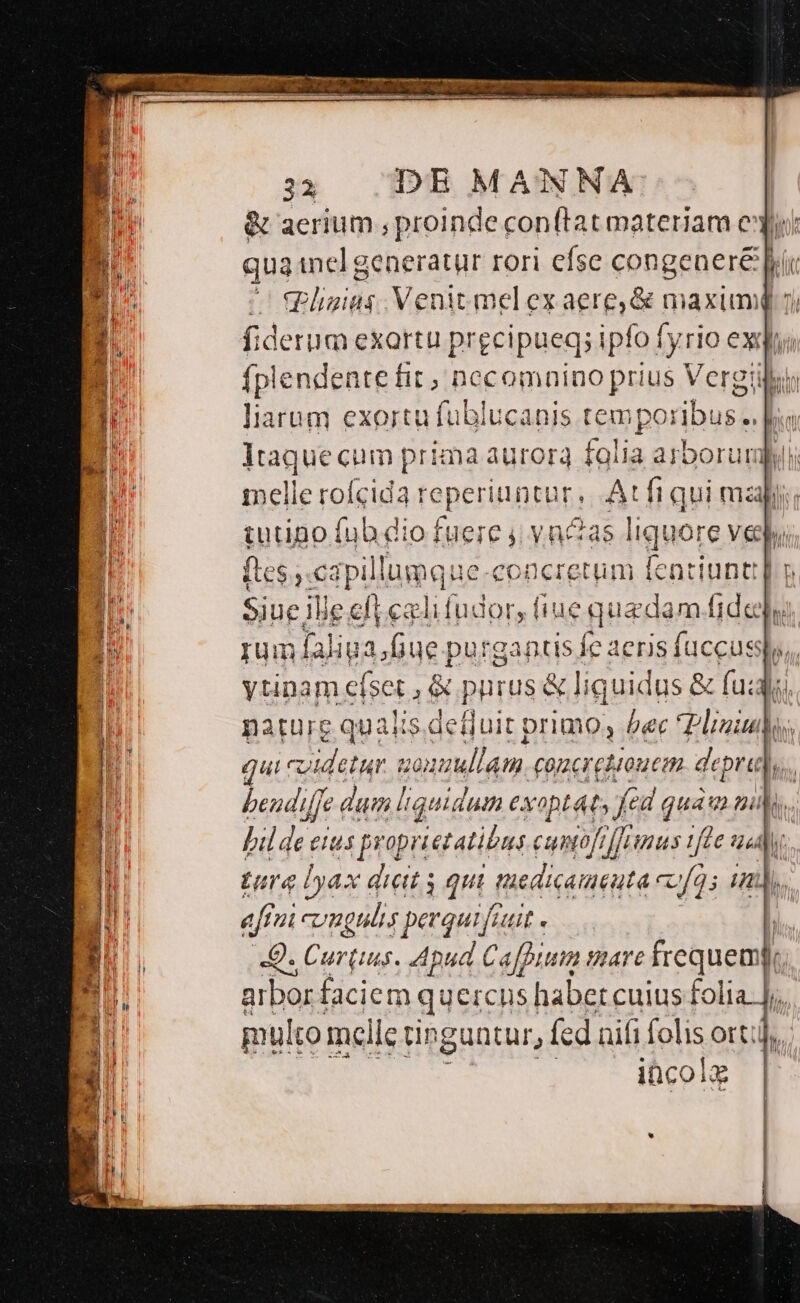 32 DE MANNA
& aerium, proinde conſtat materiam e
qua mel generatur rori eſse congenerẽ
Plinius. Venit mel ex aere, & maxim
ſiderum exortu pręcipueq; ipſo ſyrio ex
ſplendente fit, nec omnino prius Vergi
liarum exortu ſublucanis temporibus.
Itaque cum prima aurora folia arborum
melle roſcida reperiuntur. At ſi qui ma
tutino ſub dio fuere, vnctas liquore ve
ſtes, capillumque concretum ſentiunt:
Siue ille eſt cæli ſudor, ſiue quædam ſide
rum ſaliua, ſiue purgantis ſe aeris ſuccus
vtinam eſset, & purus & liquidus & ſuæ
naturę qualis defluit primo, hæc Plinius
qui videtur nonnullam concretionem depre
hendiſſe dum liquidum exoptat, ſed quàm ni
hil de eius proprietatibus cum oſiſſimus iſte na
turę lyax dicit; qui medicamenta vſq; in
aſini vngulis perquiſiuit.
Q. Curtius. Apud Caſpium mare frequem
arbor faciem quercus habet cuius folia
multo melle tinguntur, ſed niſi ſolis ortũ
incolæ